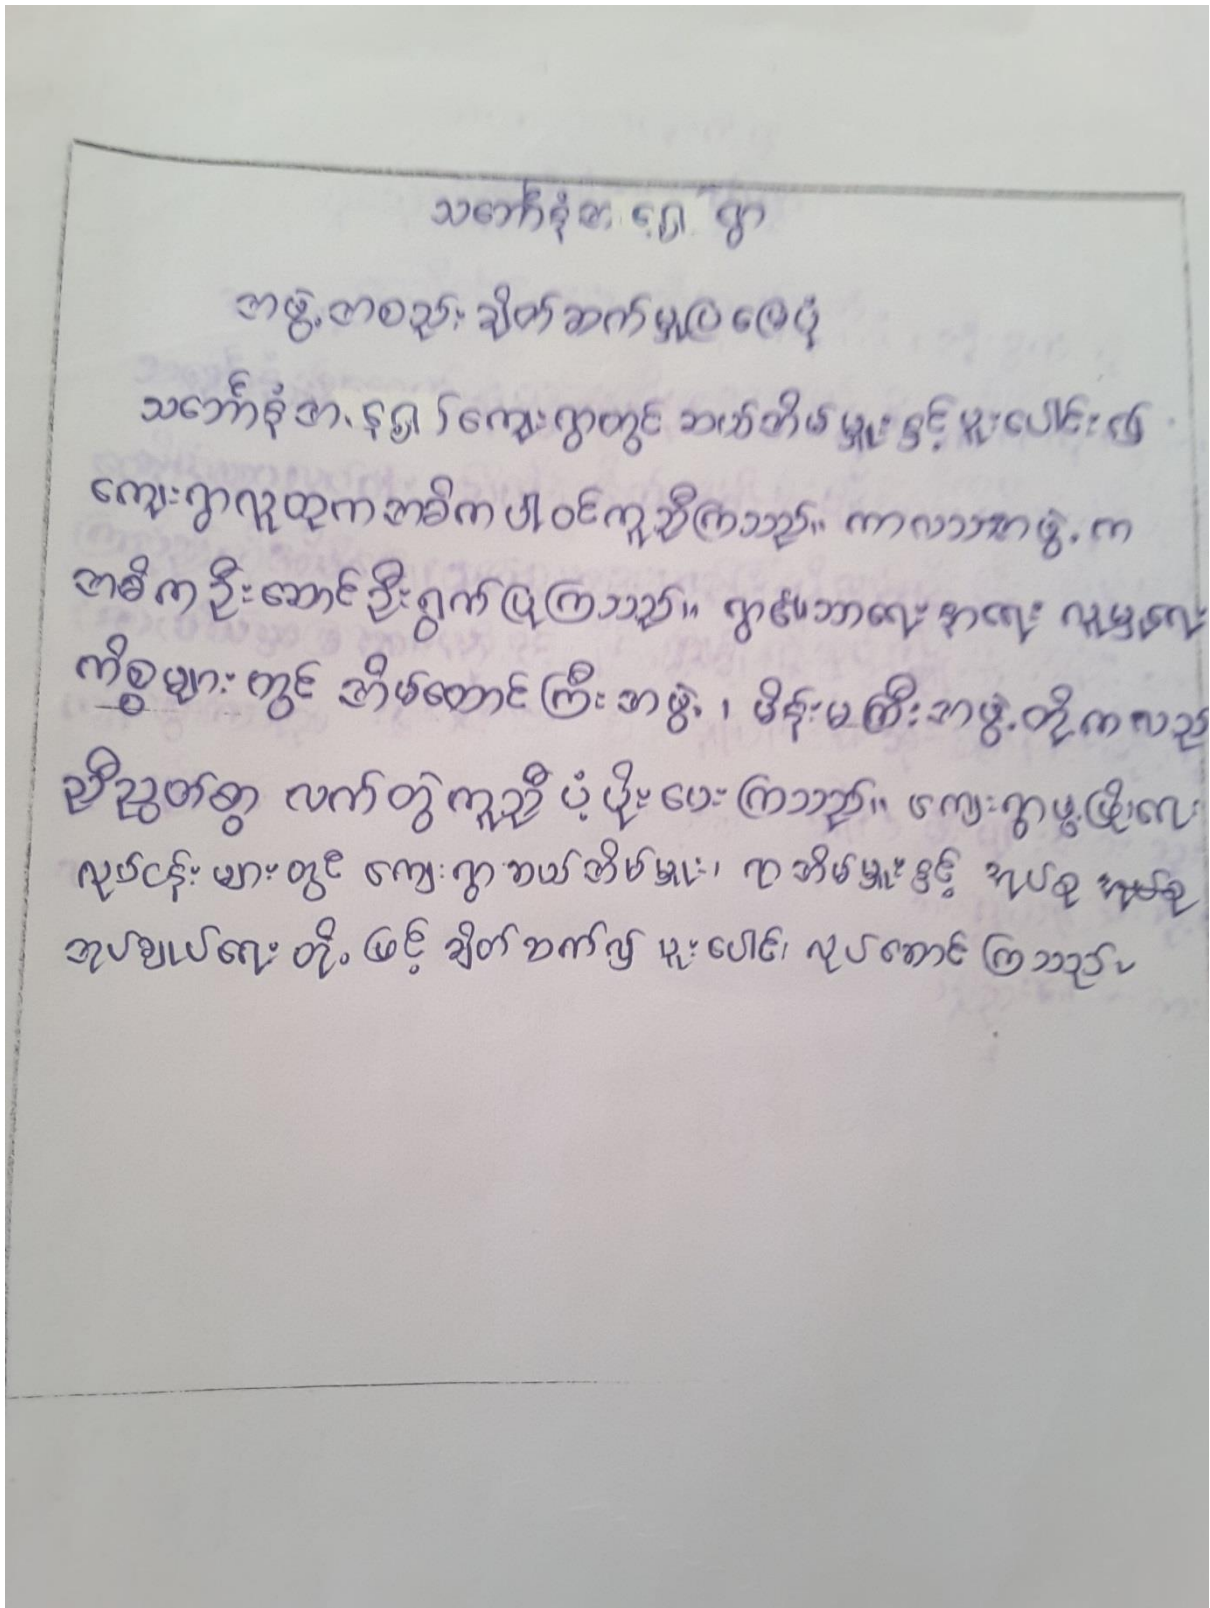 သင်္ဘောစုံအ ရှေ့ ရွာ
အဖွဲ့အစည်း ချိတ်ဆက်မှုပြမြေပုံ
သင်္ဘောစုံအ ကျေးရွာတွင် ဆယ်အိမ်မှူးနှင့် ပူးပေါင်း၍
ကျေးရွာလူထုက အဓိကပါဝင်ကူညီကြသည်။ ကာလသားအဖွဲ့က
အဓိကဦးဆောင်ဦးရွက်ပြုကြသည်။ ရွာ၏သာရေးနာရေး လူမှုရေး
ကိစ္စများတွင် အိမ်ထောင်ကြီးအဖွဲ့၊ မိန်းမကြီးအဖွဲ့တို့ကလည်
ညီညွတ်စွာ လက်တွဲကူညီ ပံ့ပိုးပေးကြသည်။ ကျေးရွာဖွံ့ဖြိုးရေး
လုပ်ငန်းများတွင် ကျေးရွာဆယ်အိမ်မှူး၊ ရာအိမ်မှူးနှင့် အုပ်စု
အုပ်ချုပ်ရေးတို့ဖြင့် ချိတ်ဆက်၍ ပူးပေါင်း လုပ်ဆောင်ကြသည်။